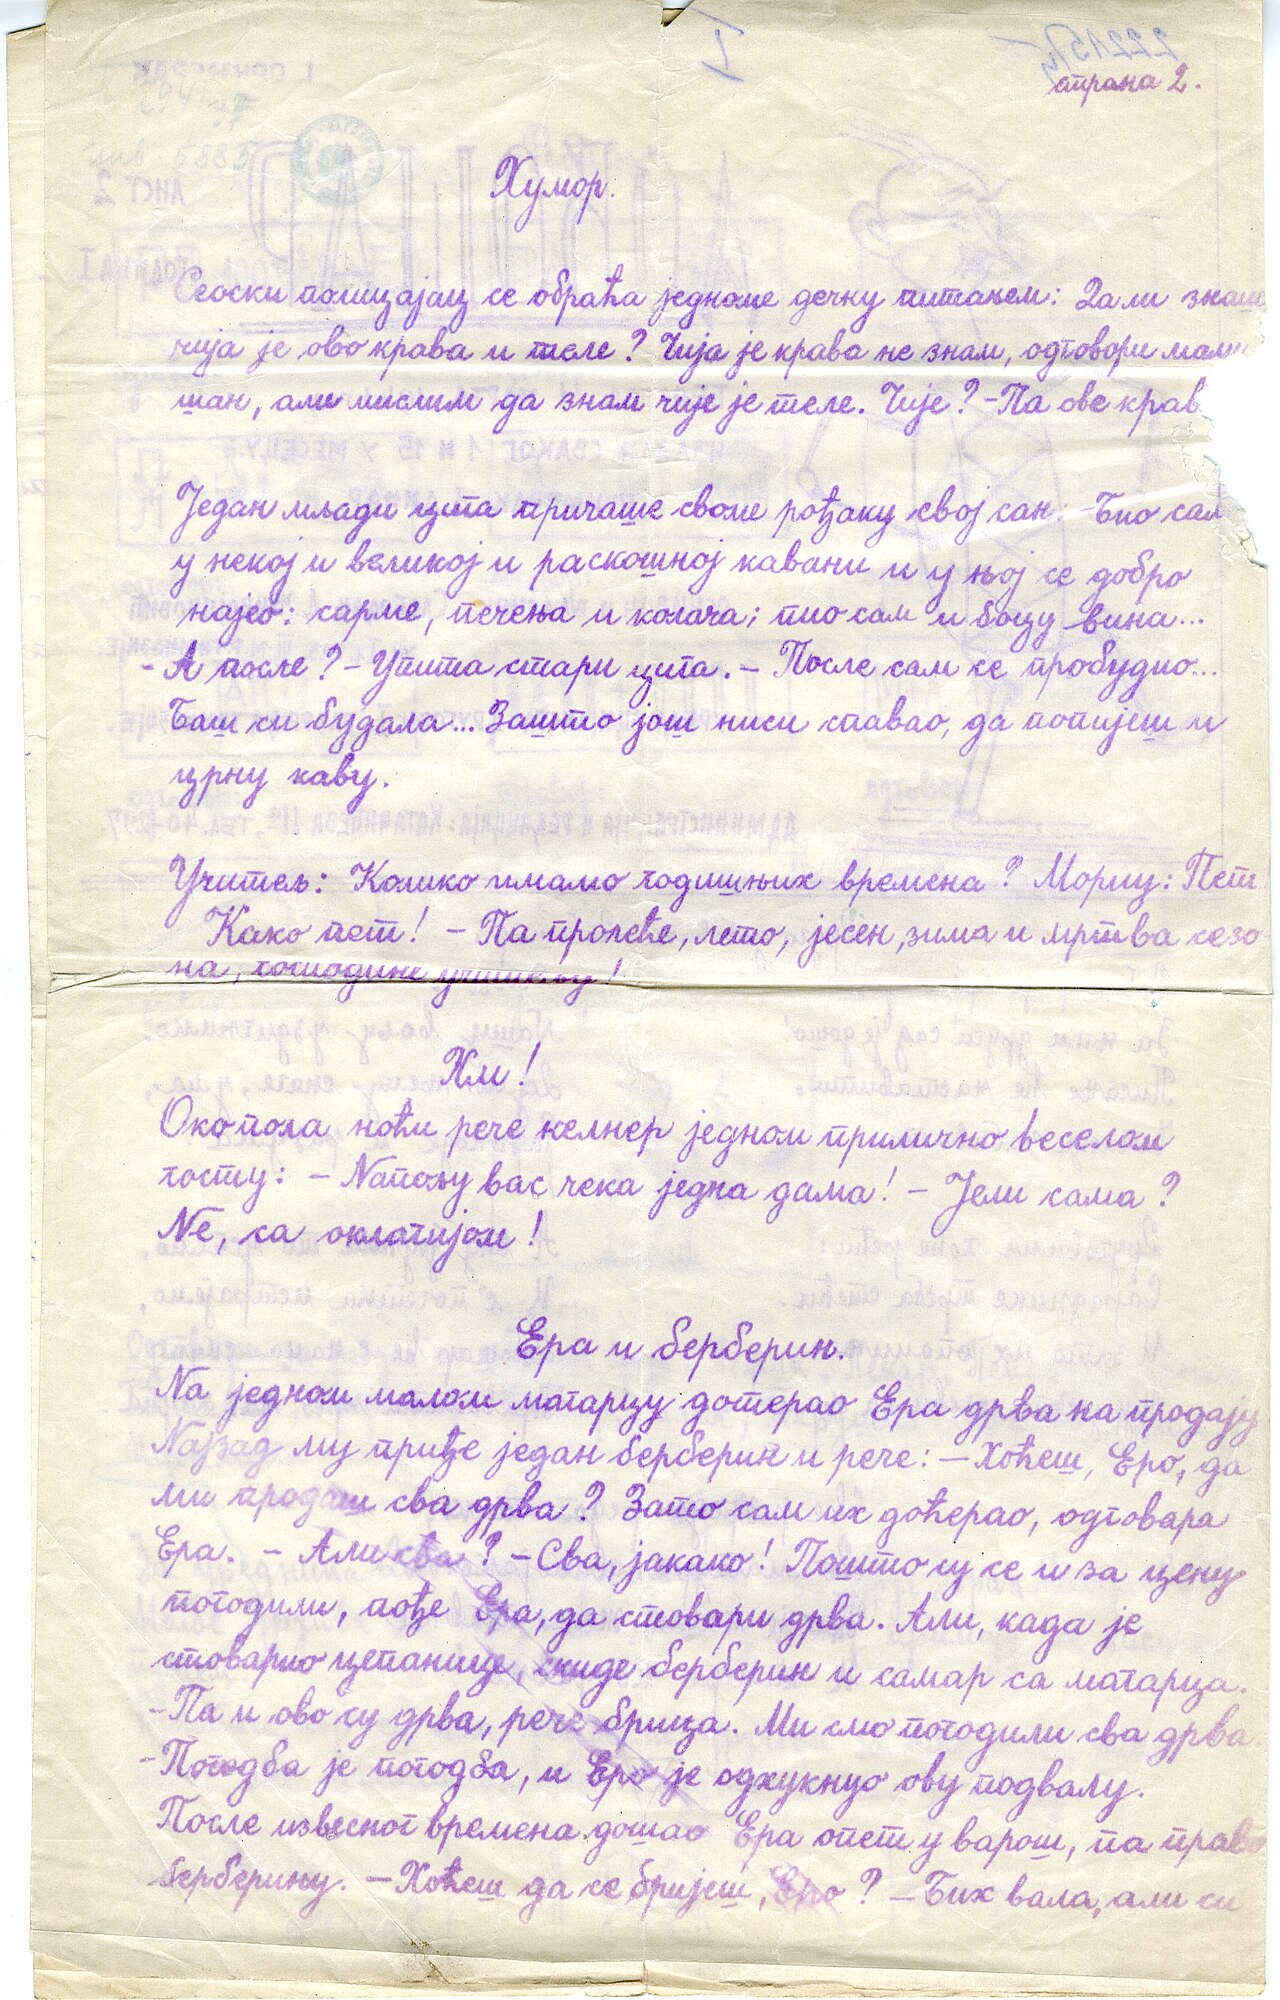 страна 2.
Хумор.
Сеоски полицајац се обраћа једноме дечку питањем: Да ли знаш
чија је ово крава и теле? Чија је крава не знам, одговори мали
шан, али мислим да знам чије је теле. Чије? - Па ове крав
Један млади цига причаше своме рођаку свој сан: - Био сам
у некој и великој и раскошној кавани и у њој се добро
најео: сарме, печења и колача; пио сам и боцу вина...
- А после? - Упита стари цига. - После сам се пробудио...
Баш си будала... Зашто још ниси спавао, да попијеш и
црну каву.
Учитељ: Колико имамо годишњих времена? Мориц: Пет
Како пет! - Па пролеће, лето, јесен, зима и мртва сезо
на, господине учитељу!
Хм!
Око пола ноћи рече келнер једном прилично веселом
госту: - Напољу вас чека једна дама! - Јели сама?
Не, са оклагијом!
Ера и берберин.
На једном малом магарцу дотерао Ера дрва на продају
Најзад му приђе један берберин и рече: - Хоћеш, Еро, да
ми продаш сва дрва? Зато сам их доћерао, одговара
Ера. - Али сва? - Сва, јакако! Пошто су се и за цену
погодили, пође Ера, да стовари дрва. Али, када је
стоварио цепанице, скиде берберин и самар са магарца.
- Па и ово су дрва, рече брица. Ми смо погодили сва дрва.
- Погодба је погодба, и Еро је одхукнуо ову подвалу.
После извесног времена дошао Ера опет у варош, па право
берберину. - Хоћеш да се бријеш, Еро? - Бих вала, али си